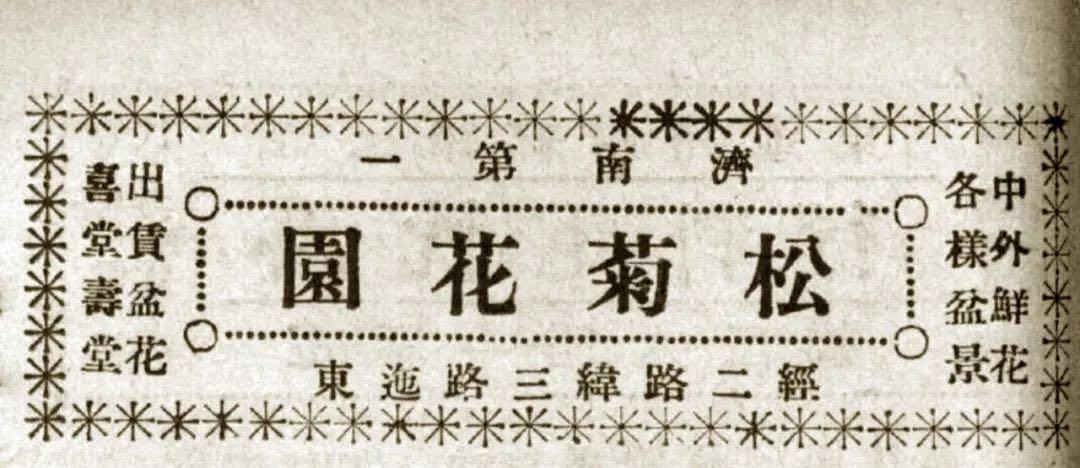 濟南第一
松菊花園
經二路緯三路迤東
中外鮮花
各樣盆景
出賃盆花
喜堂壽堂